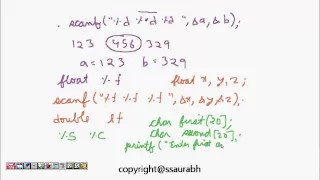 . scanf("%d %*d %d ", &a, &b);
123 456 329
a=123 b=329
float %f float x, y, z;
scanf("%f %f %f ", &x, &y, &z);
double lf char first[20];
%s %c char second[20];
printf("Enter first a
copyright@ssaurabh